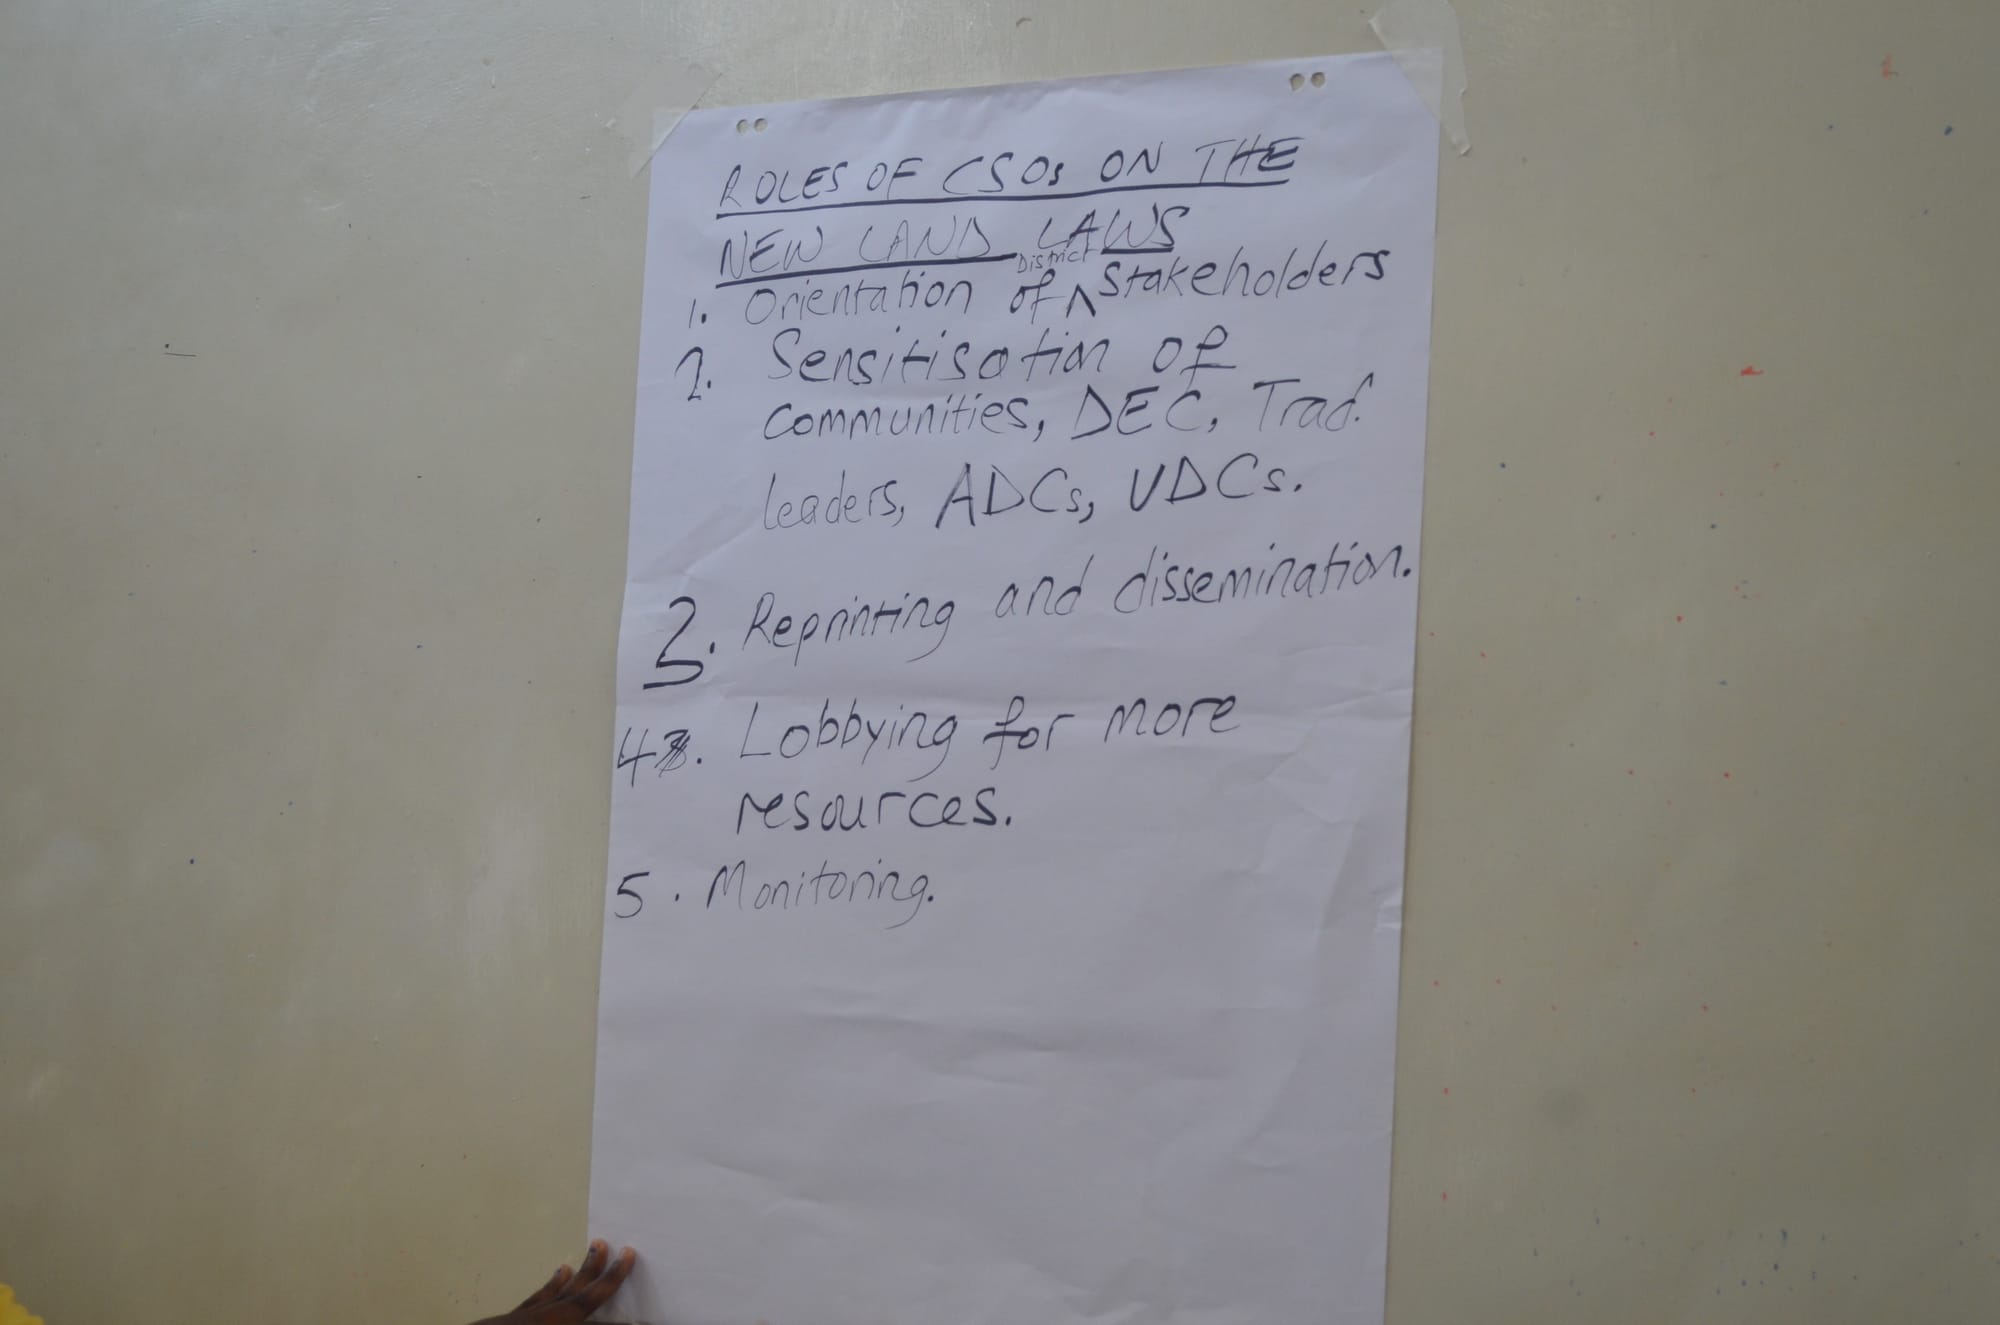 ROLES OF CSOs ON THE
NEW LAND LAWS
1. Orientation of District Stakeholders
2. Sensitisation of
communities, DEC, Trad.
leaders, ADCs, VDCs.
3. Reprinting and dissemination.
4. Lobbying for more
resources.
5. Monitoring.